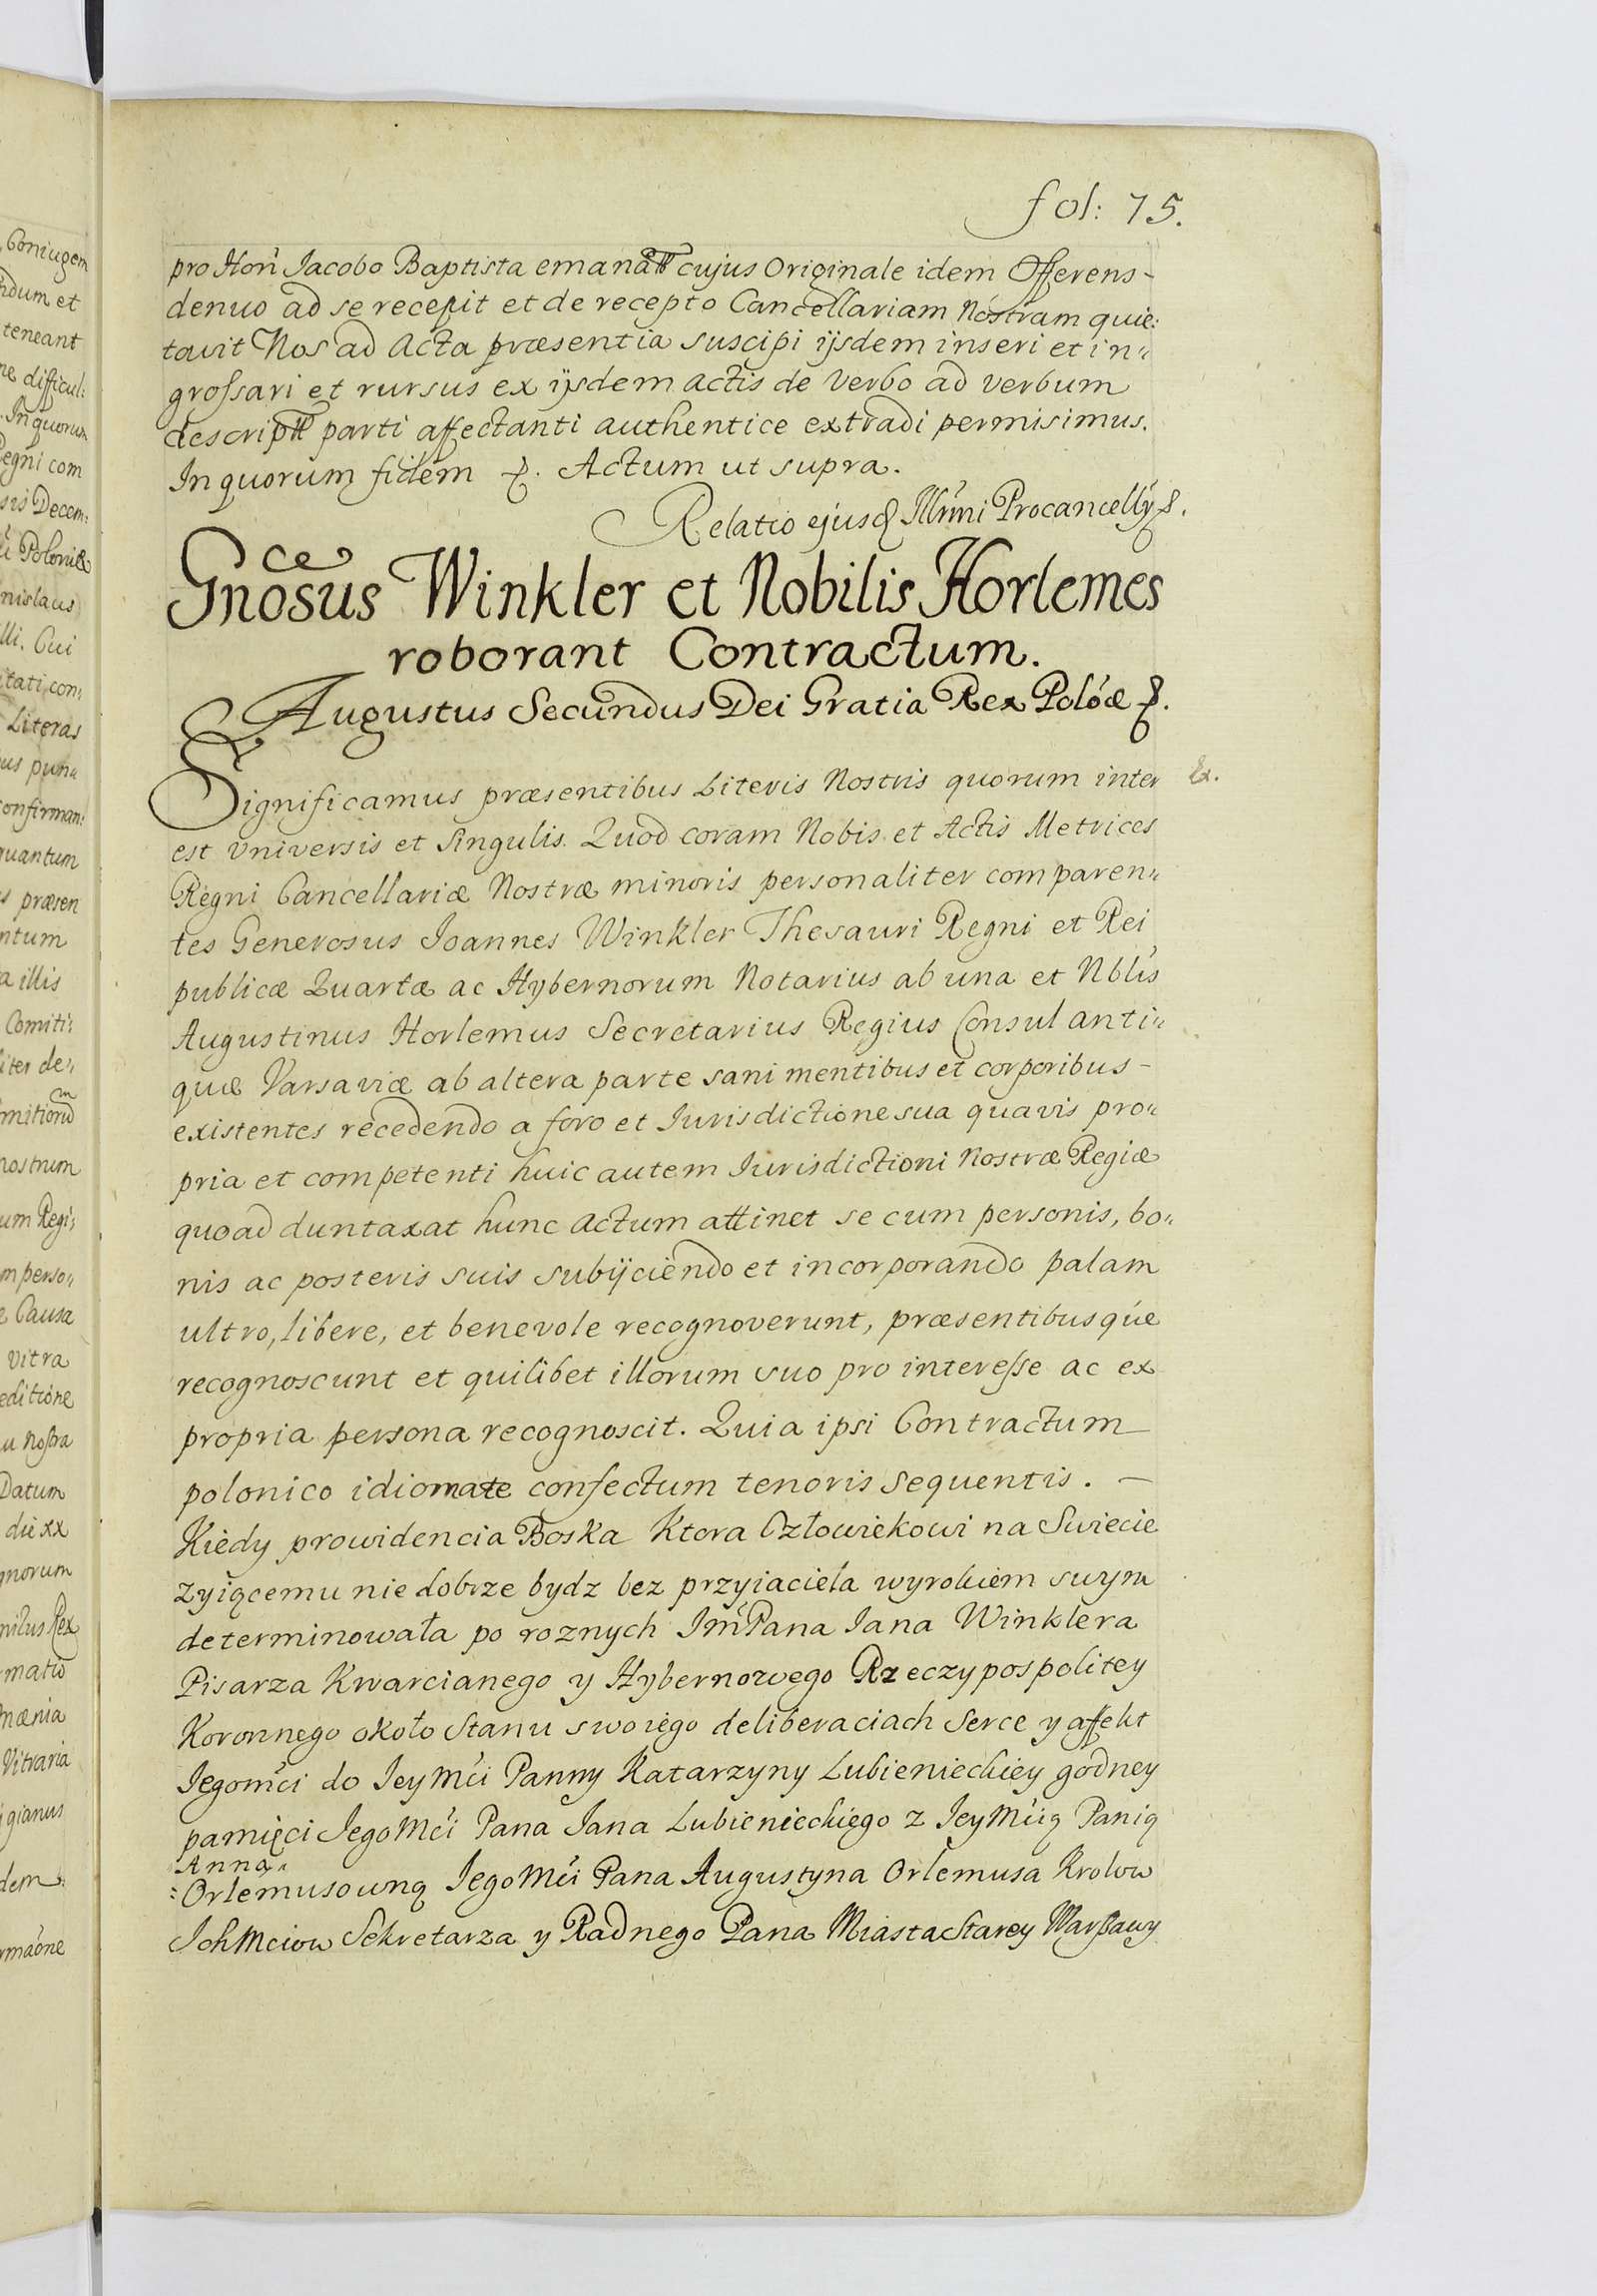 fol: 75.
pro Hon Jacobo Baptista emanatt cujus Originale idem Offerens-
denuo ad se recepit et de recepto Cancellariam Nostram quie:
tavit Nos ad Acta præsentia suscipi ijsdem inseri et in„
grossari et rursus ex ijsdem actis de verbo ad verbum
descriptt parti affectanti authentice extradi permisimus.
In quorum fidem Actum ut supra.
Relatio ejusd Illmi Procancellÿ
Gnosus Winkler et Nobilis Horlemes
roborant Contractum.
Augustus Secundus Dei Gratia Rex Polóæ
Significamus præsentibus Literis Nostris quorum inter
est Vniversis et Singulis. Quod coram Nobis et Actis Metrices
Regni Cancellariæ Nostræ minoris personaliter comparen„
tes Generosus Joannes Winkler Thesauri Regni et Rei
publicæ Quartæ ac Hybernorum Notarius ab una et Nblis
Augustinus Horlemus Secretarius Regius Consul anti„
quæ Varsaviæ ab altera parte sani mentibus et corporibus-
existentes recedendo a foro et Jurisdictione sua quavis pro„
pria et competenti huic autem Jurisdictioni Nostræ Regiæ
quoad duntaxat hunc Actum attinet se cum personis, bo„
nis ac posteris suis subijciendo et incorporando palam
ultro, libere, et benevole recognoverunt, præsentibusque
recognoscunt et quilibet illorum suo pro interesse ac ex
propria persona recognoscit. Quia ipsi Contractum
polonico idiomate confectum tenoris sequentis. —
Kiedy prowidencia Boska Ktora Człowiekowi na Swiecie
zyiącemu nie dobrze bydz bez przyiaciela wyrokiem swym
determinowała po roznych Jm̃Pana Jana Winklera
Pisarza Kwarcianego y Hybernowego Rzeczypospolitey
Koronnego około Stanu swoiego deliberaciach Serce y affekt
Jegomci do Jey Mci Panny Katarzyny Lubienieckiey godney
pamięci Jego Mci Pana Jana Lubienieckiego z Jey Mcią Panią
Anną„
:Orlemusowną Jego Mci Pana Augustyna Orlemusa Krolow
Ich Mciow Sekretarza y Radnego Pana Miasta Starey Warszawy